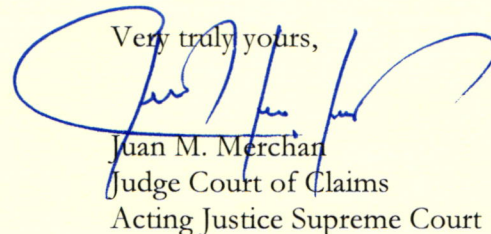 Very truly yours,
Juan M. Merchan
Judge Court of Claims
Acting Justice Supreme Court